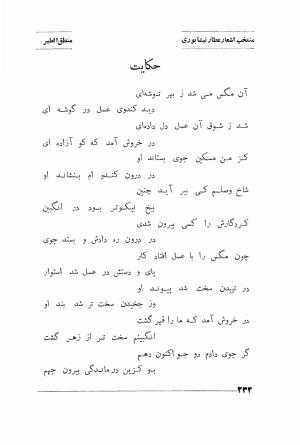 منتخب اشعار عطار نیشابوری
منطق الطیر
حکایت
آن مگس می شد ز بهر توشه‌ای
دید کندوی عسل در گوشه ای
شد ز شوق آن عسل دل داده‌ای
در خروش آمد که کو آزاده ای
کز من مسکین جوی بستاند او
در درون کندو ام بنشاند او
شاخ وصلم گر ببر آید چنین
بیخ نیکوتر بود در انگبین
کردکارش را کسی بیرون شدی
در درون ره دادش و بستد جوی
چون مگس را با عسل افتاد کار
پای و دستش در عسل شد استوار
در تپیدن سخت شد پیوند او
وز چخیدن سخت تر شد بند او
در خروش آمد که ما را قهر گشت
انگبینم سخت تر از زهر گشت
گر جوی دادم دو جو اکنون دهم
بو کزین درماندگی بیرون جهم
۲۴۲